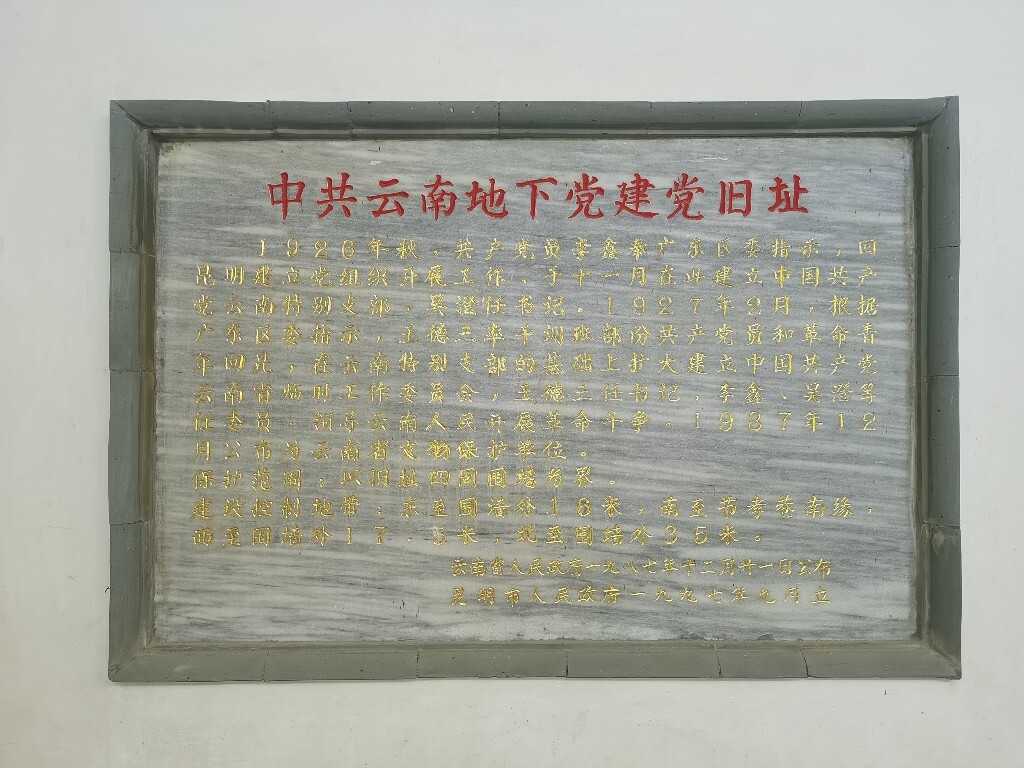 中共云南地下党建党旧址
1926年秋，共产党员李鑫奉广东区委指示，回
昆明建立党组织开展工作，于十一月在此建立中国共产
党云南特别支部，吴澄任书记。1927年2月，根据
广东区委指示，王德三率干训班部份共产党员和革命青
年回昆，在云南特别支部的基础上扩大建立中国共产党
云南省临时工作委员会，王德三任书记，李鑫、吴澄等
任委员。领导云南人民开展革命斗争。1987年12
月公布为云南省文物保护单位。
保护范围：以旧址四周围墙为界。
建设控制地带：东至围墙外18米，南至节孝巷南缘，
西至围墙外17.5米，北至围墙外35米。
云南省人民政府一九八七年十二月廿一日公布
昆明市人民政府一九九七年九月立